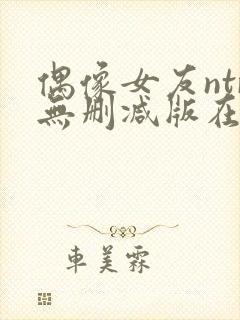 偶像女友nt
無删减版在
車美霖